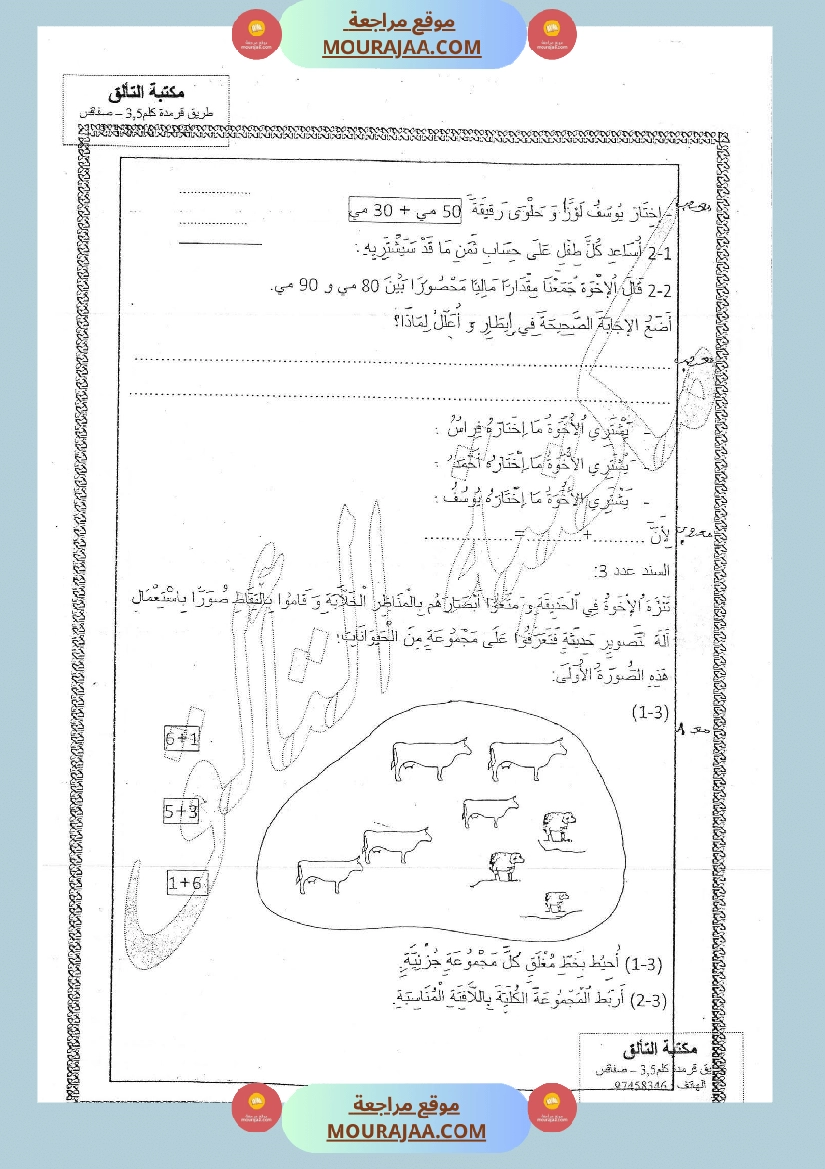 موقع مراجعة
MOURAJAA.COM
مكتبة التألق
طريق قرمدة كلم3,5 – صفاقس
- إِخْتَارَ يُوسُفُ لَوْزًا وَ حَلْوَى رَقِيقَةً 50 مي + 30 مي
2-1 أُسَاعِدُ كُلَّ طِفْلٍ عَلَى حِسَابِ ثَمَنِ مَا قَدْ سَيَشْتَرِيهِ :
2-2 قَالَ الإِخْوَة جَمَعْنَا مِقْدَارًا مَالِيًا مَحْصُورًا بَيْنَ 80 مي و 90 مي.
أَضَعُ الإِجَابَةَ الصَّحِيحَةَ فِي إِطَارٍ وَ أُعَلِّلُ لِمَاذَا؟
- يَشْتَرِي الأُخْوَةُ مَا إِخْتَارَهُ فِرَاسُ :
- يَشْتَرِي الأُخْوَةُ مَا إِخْتَارَهُ أَحْمَدُ :
- يَشْتَرِي الأُخْوَةُ مَا إِخْتَارَهُ يُوسُفُ :
لِأَنَّ ............+............=............
السند عدد 3:
تَنَزَّهَ الإِخْوَةُ فِي الحَدِيقَةِ وَ مَتَّعُوا أَبْصَارَهُم بِالْمَنَاظِرِ الْخَلاَّبَةِ وَ قَامُوا بِالْتِقَاطِ صُوَرًا بِاسْتِعْمَالِ
آلَة تَصْوِيرٍ حَدِيثَةٍ فَتَعَرَّفُوا عَلَى مَجْمُوعَةٍ مِنَ الْحَيَوَانَاتِ؛
هَذِهِ الصُّورَةُ الأُولَى:
(1-3)
مع 1
6+1
5+3
1+6
(1-3) أُحِيطُ بِخَطٍّ مُغْلَقٍ كُلَّ مَجْمُوعَةٍ جُزْئِيَّةٍ
(2-3) أَرْبَط الْمَجْمُوعَةَ الكُلِّيَّةَ بِاللَّافِتَةِ الْمُنَاسِبَةِ.
مكتبة التألق
طريق قرمدة كلم3,5 – صفاقس
الهاتف : 97458346
موقع مراجعة
MOURAJAA.COM